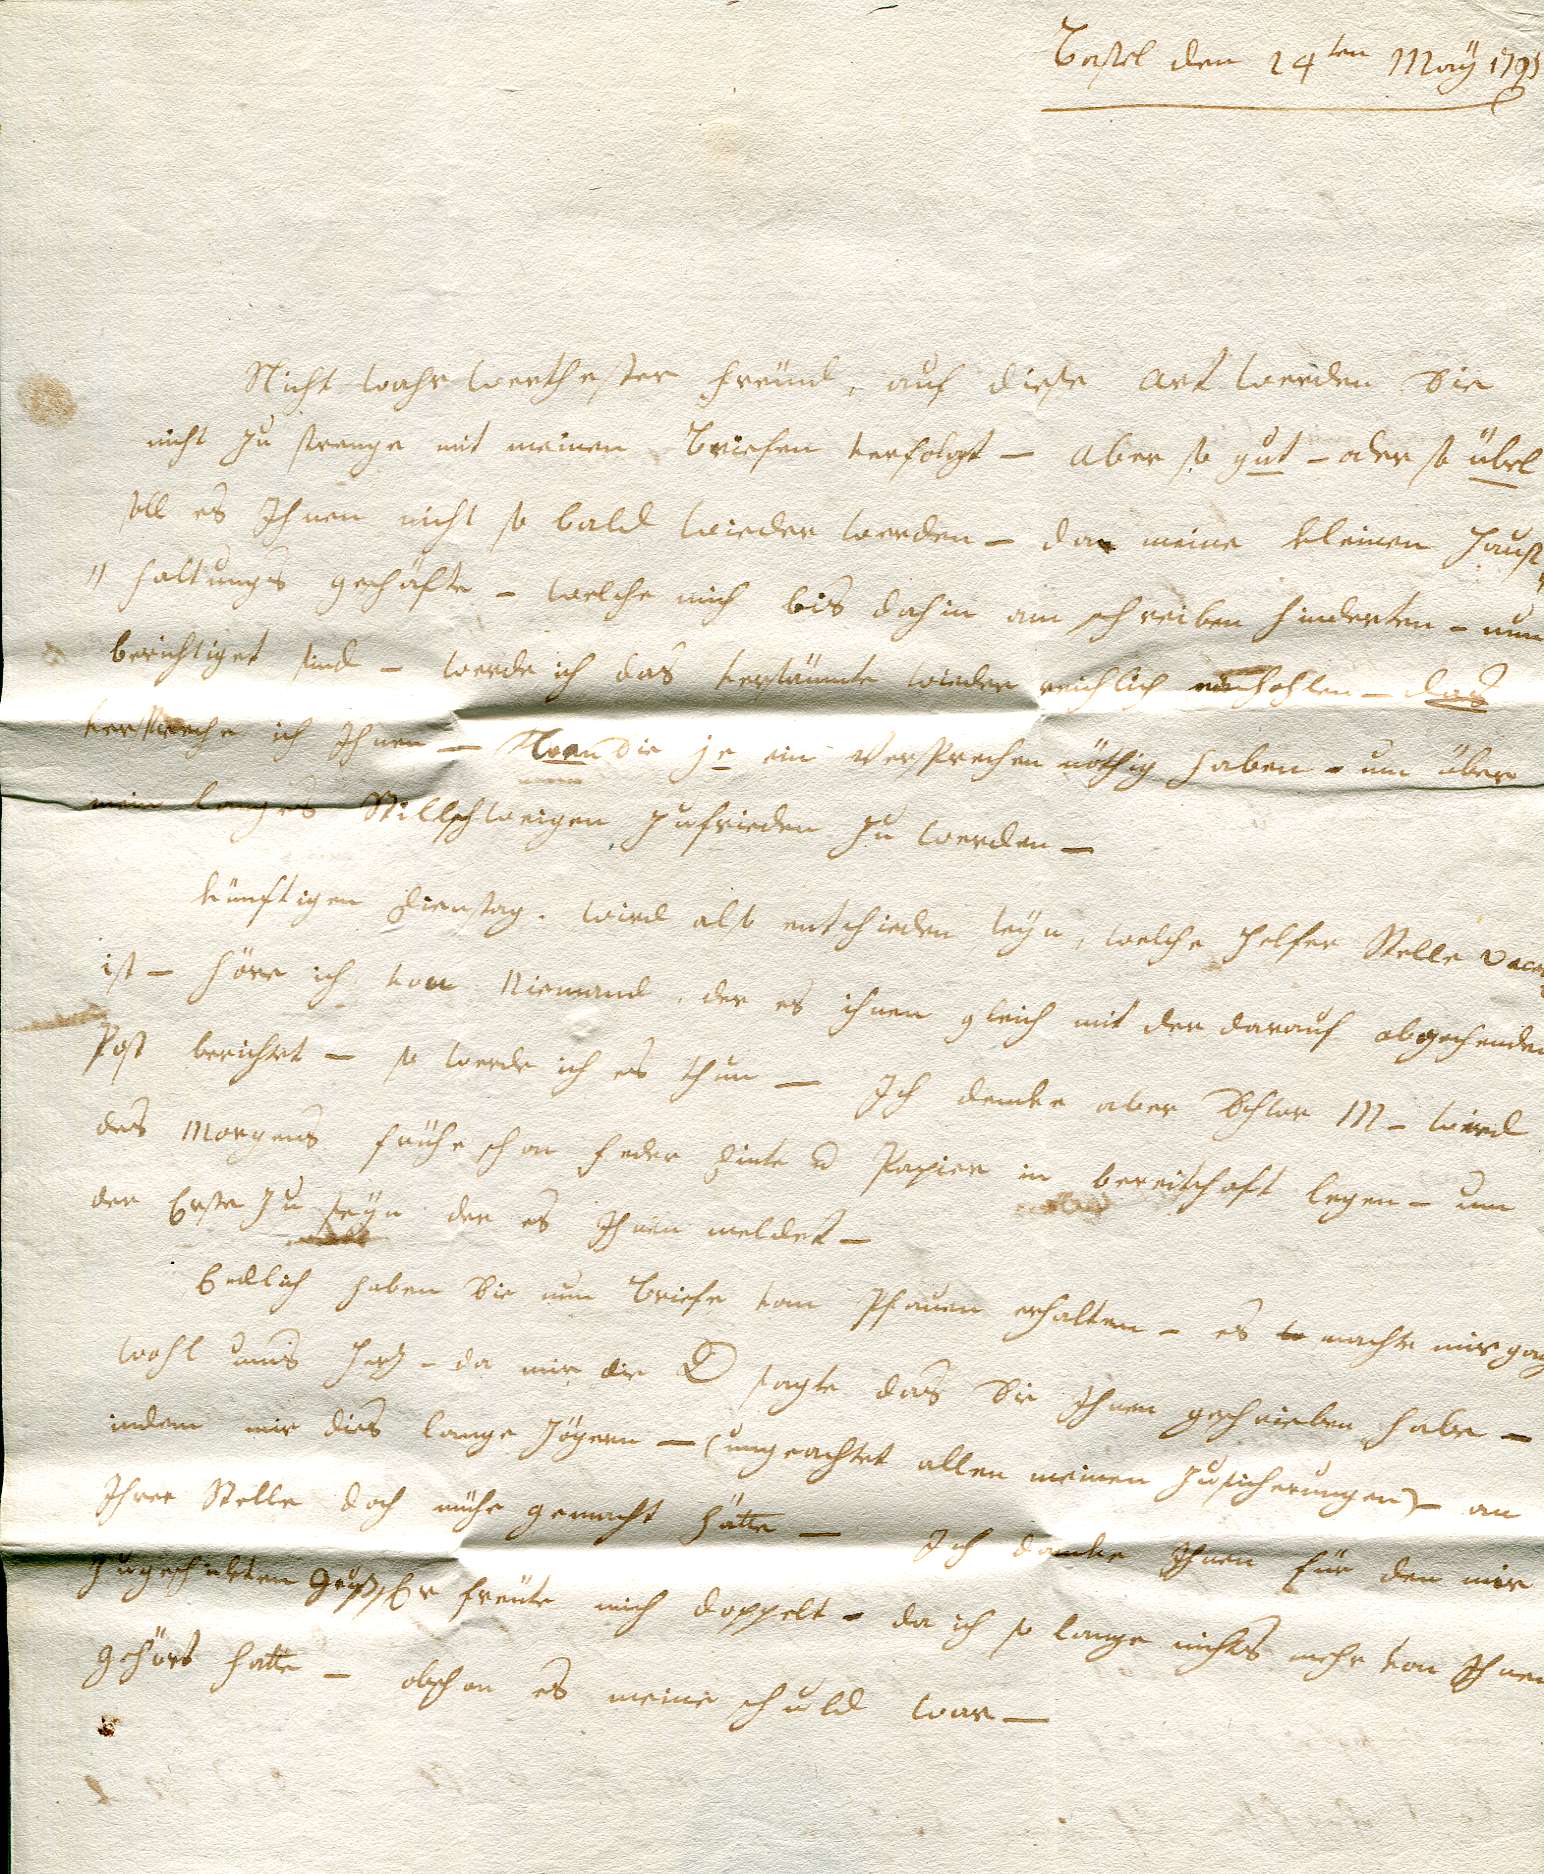 Basel den 24ten Maÿ 1795
Nicht wahr werthester freünd, auf diese Art werden Sie
nicht zu strenge mit meinen Briefen verfolgt – Aber so gut – oder so übel
soll es Ihnen nicht so bald wieder werden – da meine kleinen Hauß
" haltungs geschäfte – welche mich bis dahin am schreiben hinderten – nun
berichtiget sind – werde ich das versäumte wieder reichlich einhohlen – das
verspreche ich Ihnen – Wenn Sie je ein Versprechen nöthig haben – um über
mein langes Stillschweigen zufrieden zu werden –
künftigen Dienstag. wird also entschieden seÿn, welche Helfer Stelle
ist – höre ich von Niemand, der es ihnen gleich mit der darauf abgehenden
Post berichtet – so werde ich es thun – Ich denke aber M – wird
des Morgens frühe schon feder Dinte u Papier in bereitschaft legen – um
der Erste zu seÿn der es Ihnen meldet –
Endlich haben Sie nun Briefe vom Pfauen erhalten – es machte mir ganz
wohl ums Herz – da mir die D sagte das Sie Ihnen geschrieben habe –
indem mir dies lange Zögern – (ungeachtet allen meinen Zusicherungen) – an
Ihrer Stelle doch mühe gemacht hätte – Ich danke Ihnen für den mir
zugeschickten Gruß, Er freüte mich doppelt – da ich so lange nichts mehr von Ihnen
gehört hatte – obschon es meine schuld war –